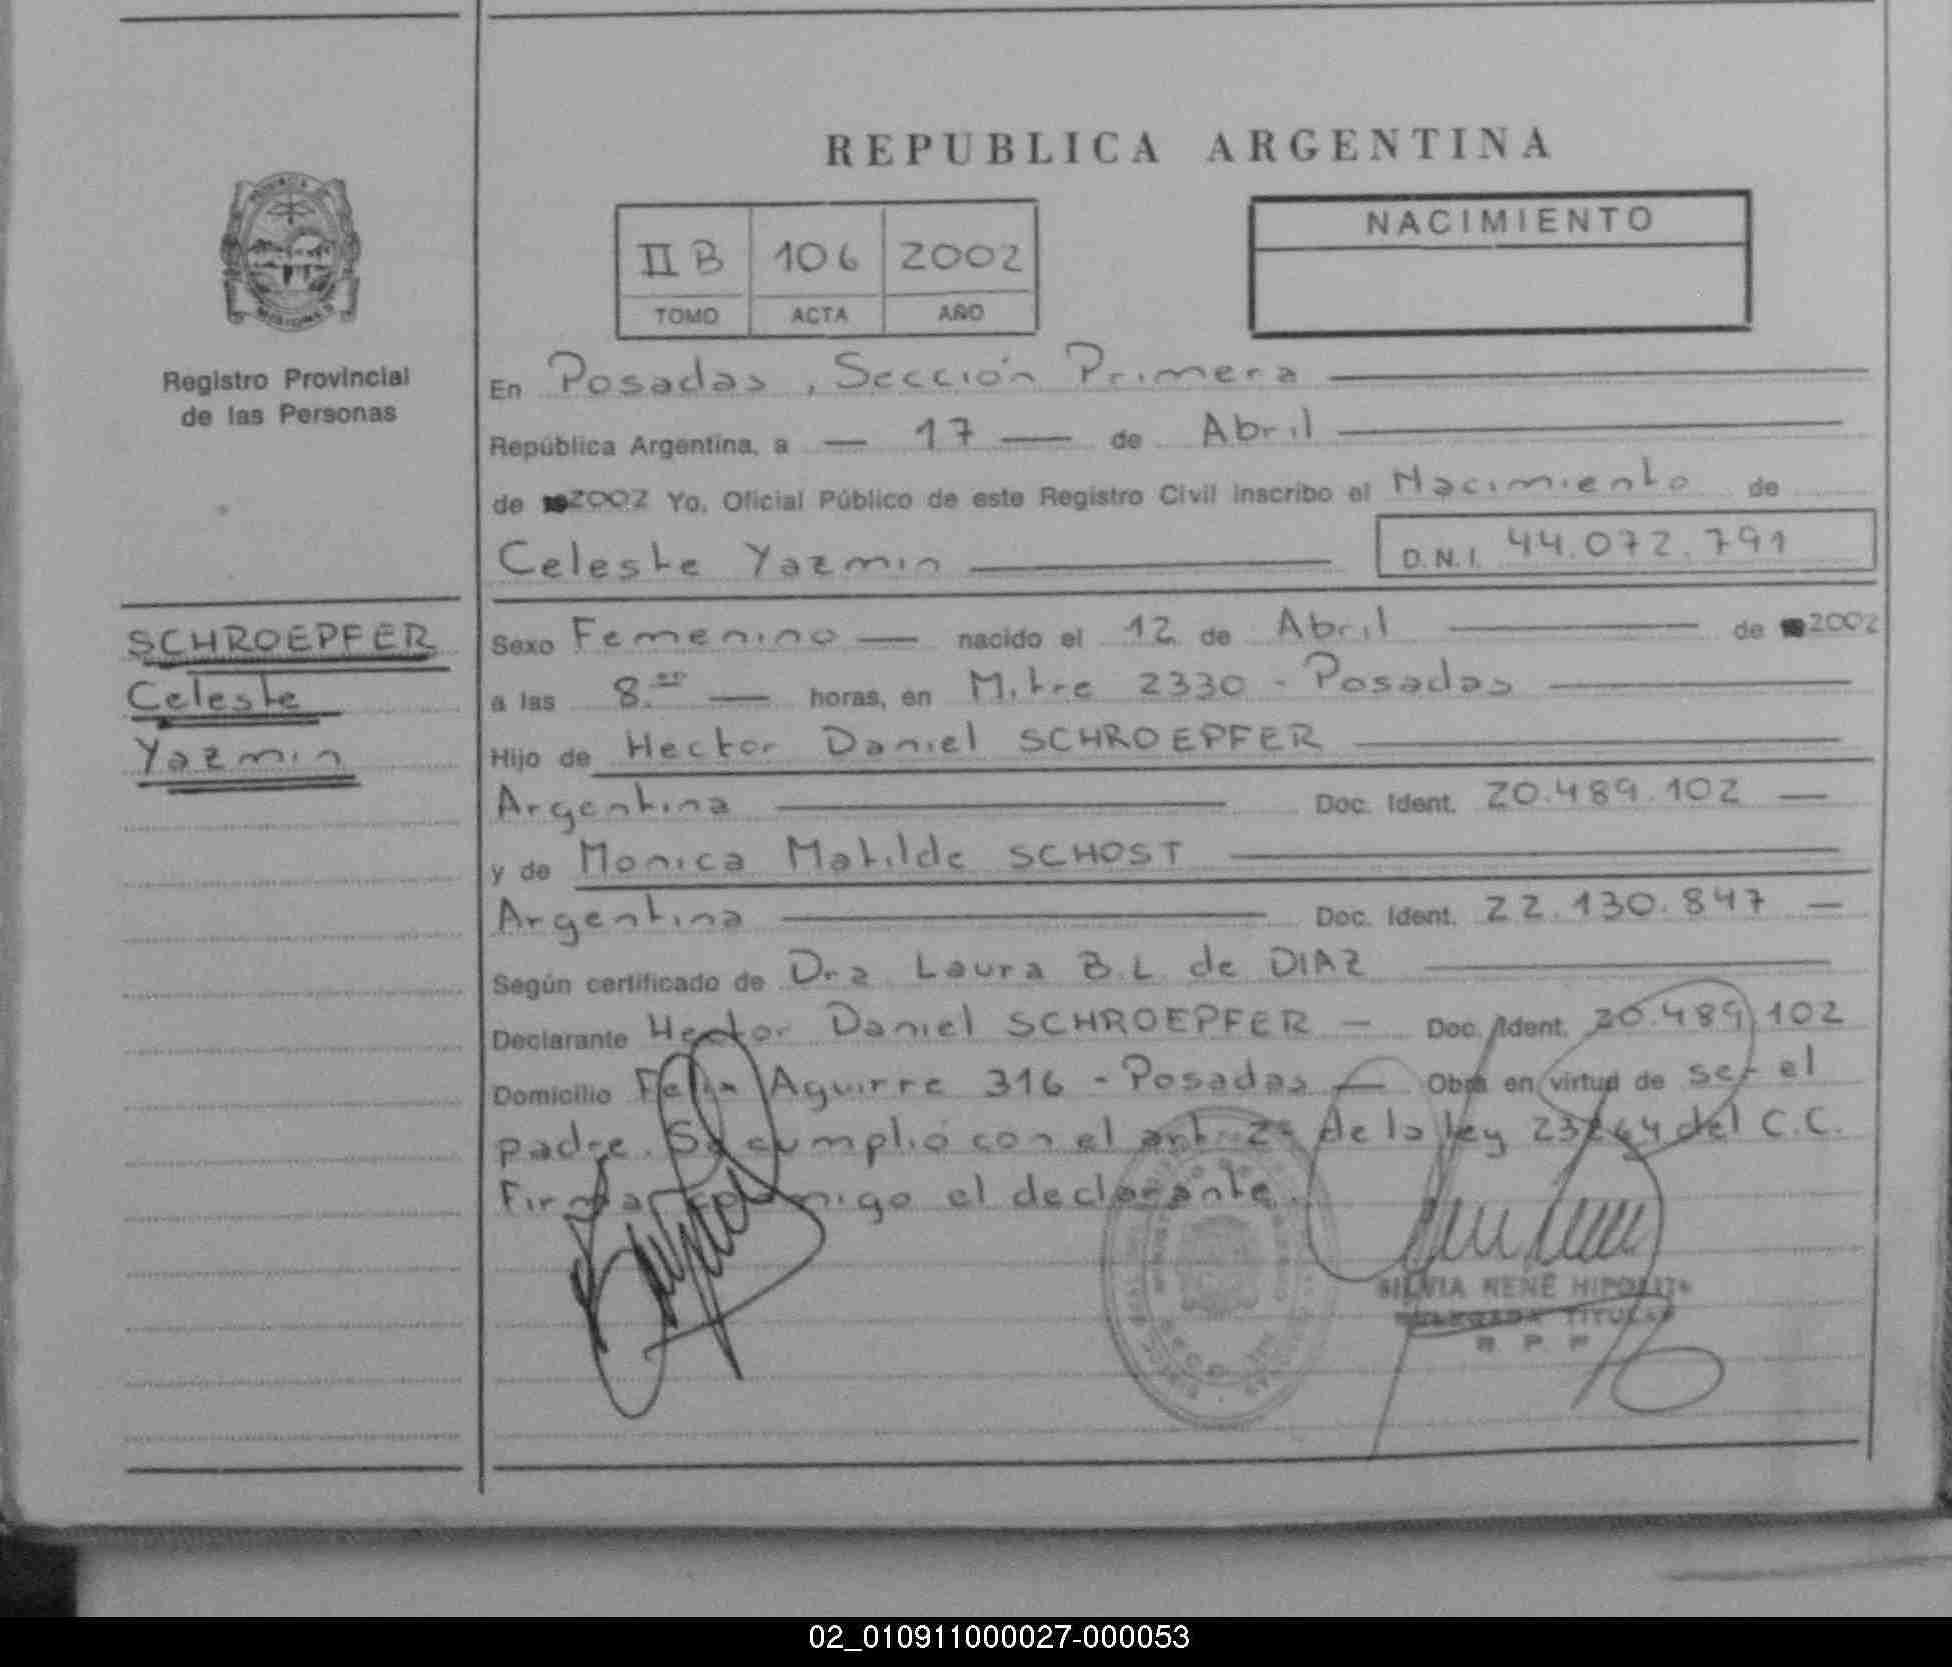 REPUBLICA ARGENTINA
NACIMIENTO
II B 106 2002
TOMO ACTA AÑO
Registro Provincial
de las Personas
En Posadas, Sección Primera
República Argentina, a 17 de Abril
de 2002 Yo, Oficial Público de este Registro Civil inscribo el Nacimiento de
Celeste Yazmin D.N.I. 44.072.791
SCHROEPFER
Celeste
Yazmin
Sexo Femenino nacido el 12 de Abril de 2002
a las 8.00 horas, en Mitre 2330 - Posadas
Hijo de Hector Daniel SCHROEPFER
Argentina Doc. Ident. 20.489.102
y de Monica Matilde SCHOST
Argentina Doc. Ident. 22.130.847
Según certificado de Dra Laura B.L de DIAZ
Declarante Hector Daniel SCHROEPFER - Doc. Ident. 20.489.102
Domicilio Felix Aguirre 316 - Posadas Obra en virtud de ser el
padre. Se cumplió con el art. 2º de la ley 23264 del C.C.
Firma conmigo el declarante.
SILVIA RENÉ HIPOLITO
DELEGADA TITULAR
R. P. P.
02_010911000027-000053